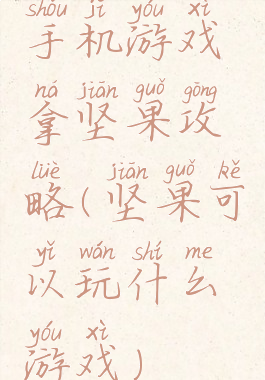 shǒu jī yóu xì
手机游戏
ná jiān guǒ gōng
拿坚果攻
lüè jiān guǒ kě
略(坚果可
yǐ wán shí me
以玩什么
yóu xì
游戏)